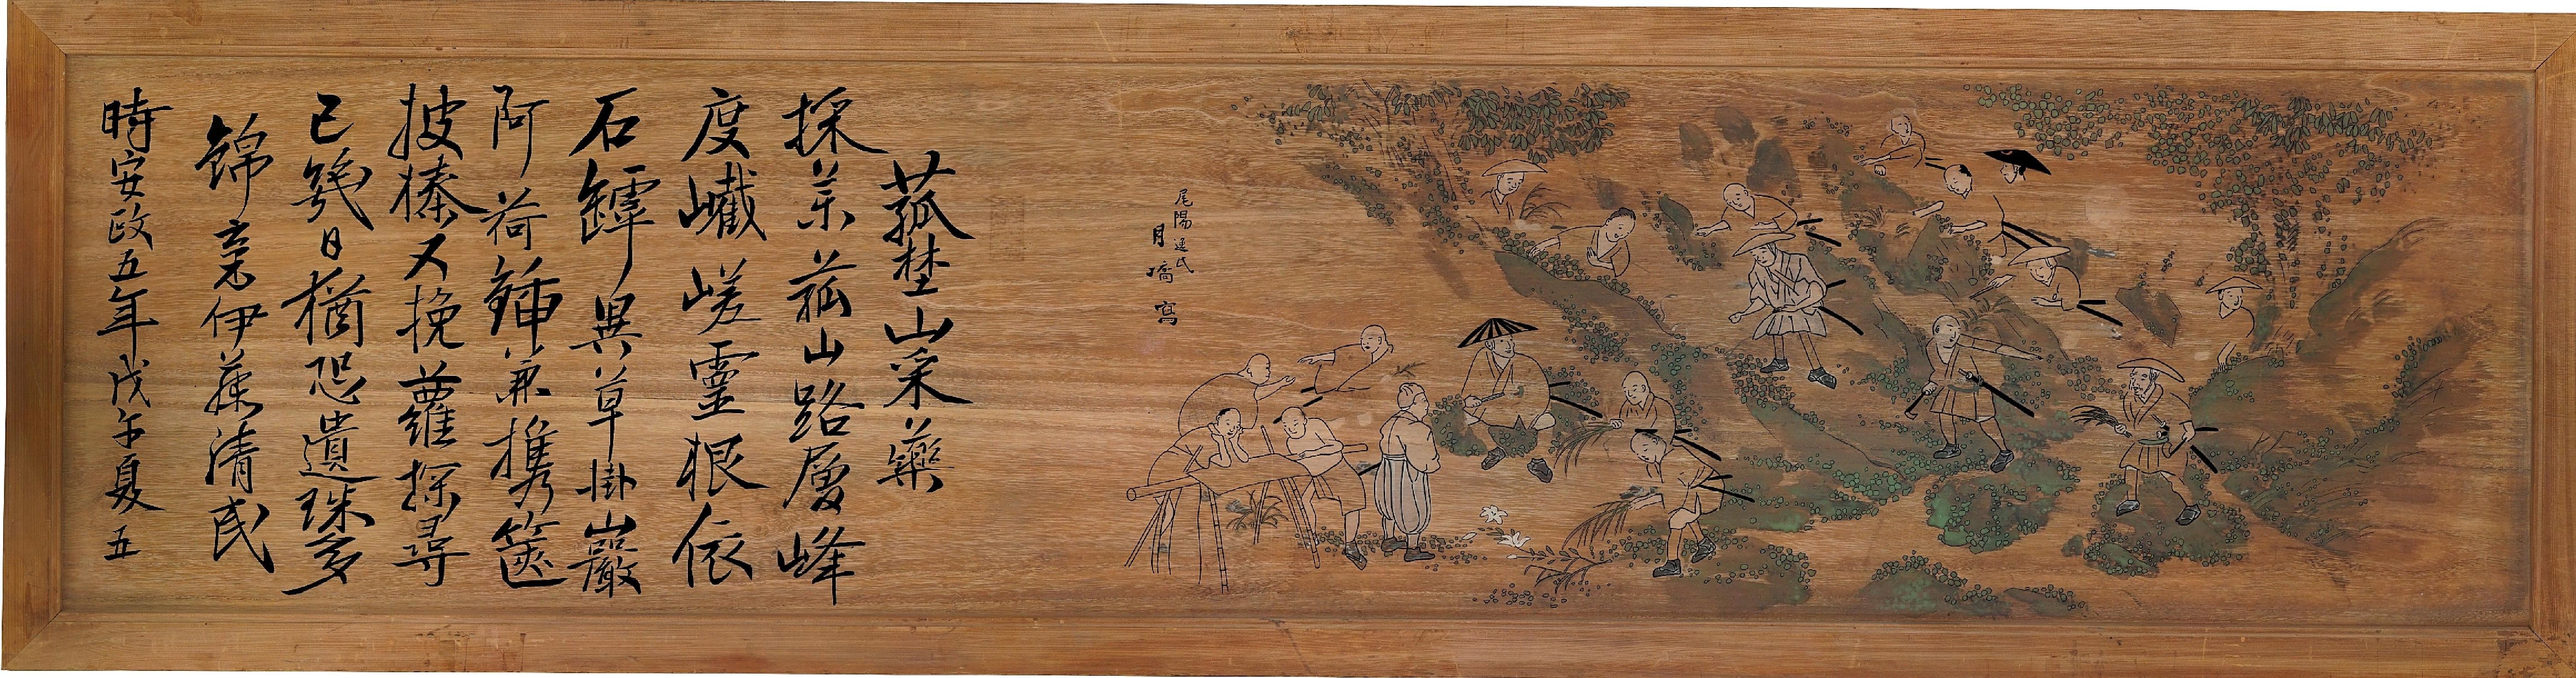 尾陽
月嶠寫
菰埜山采藥
採茉菰山路層峰
度巇嵯靈根依
石罅異草掛巖
阿荷鍤兼携篋
披榛又挽蘿探尋
已幾日猶恐遺珠多
錦窠伊藤清民
時安政五年戊午夏五